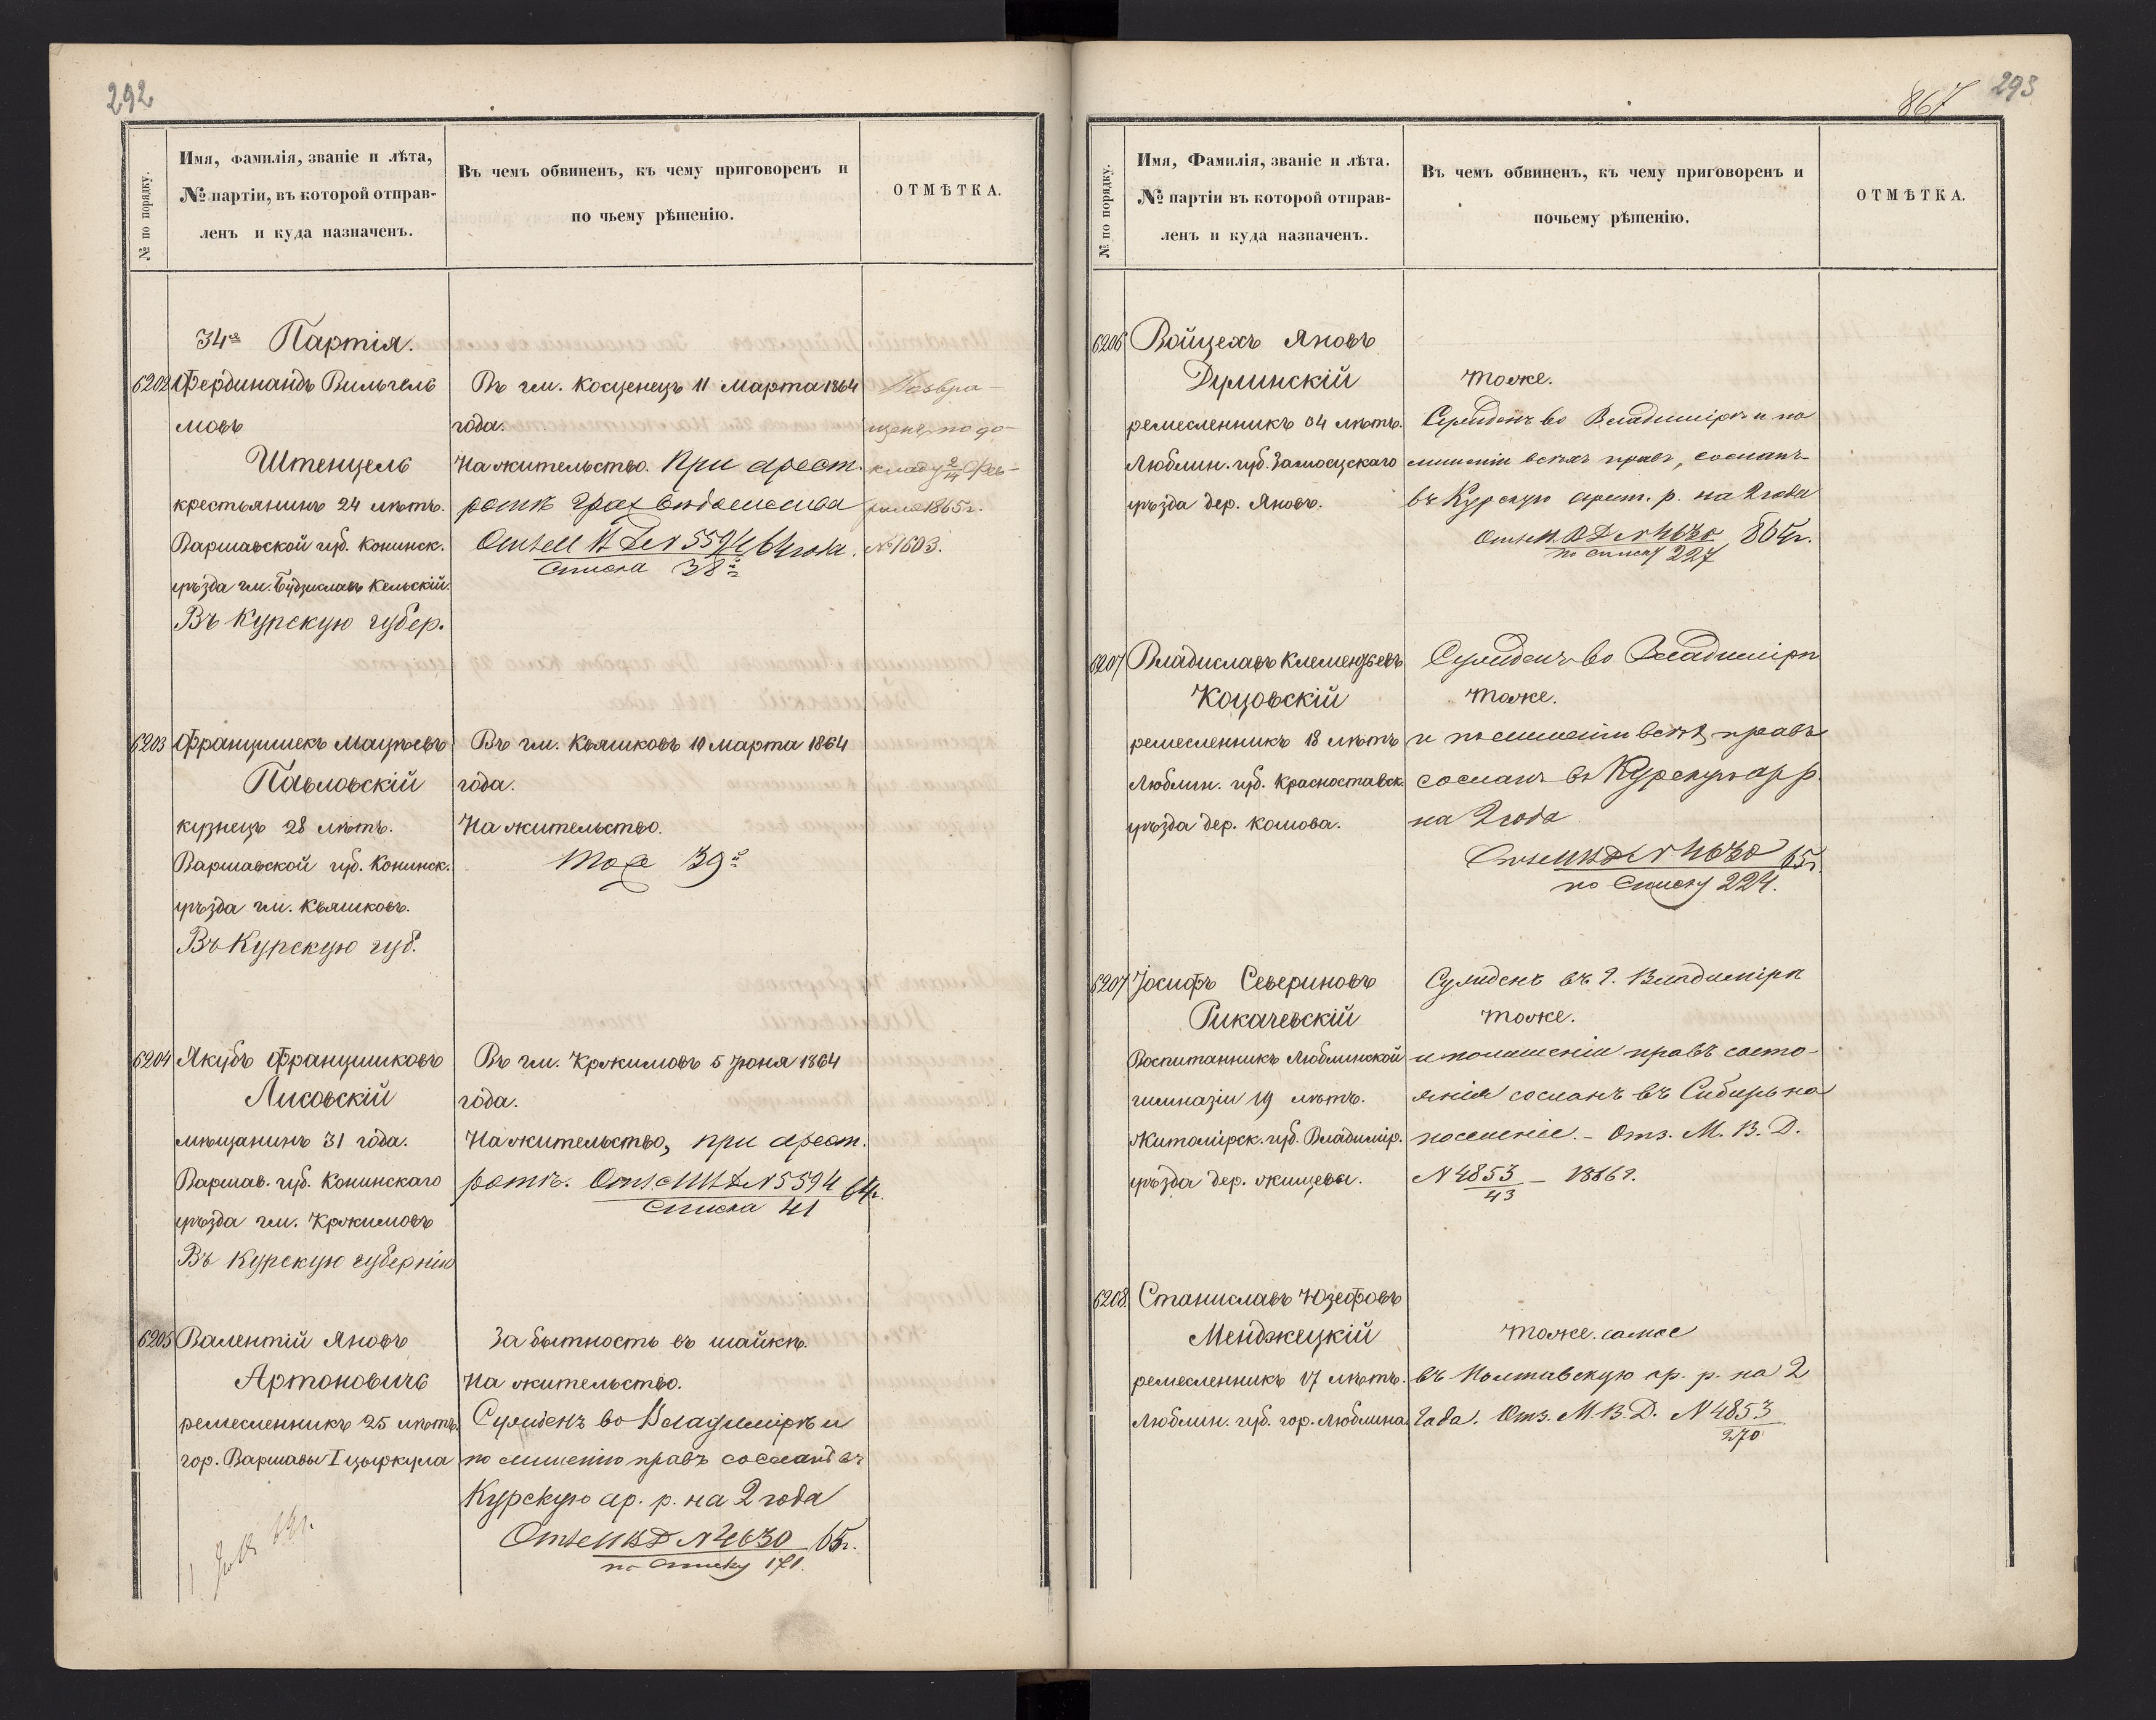 292
№ по порядку.
Имя, фамилія, званіе и лѣта,
№ партіи, въ которой отправ-
ленъ и куда назначенъ.
Въ чемъ обвиненъ, къ чему приговоренъ и
по чьему рѣшенію.
ОТМѢТКА.
34я Партія.
6202 Фердинандъ Вильгель
мовъ
Штенцель
крестьянинъ 24 лѣтъ.
Варшавской губ. Конинск.
уѣзда гм. Будзиславъ Кельскій.
Въ Курскую губер.
Въ гм. Косценецъ 11 Марта 1864
года.
На жительство. При арест.
ротѣ граж вѣдомства
Отз М В Д № 5594 64 года.
Списка 38й
Возвра-
щенъ по до-
кладу 2/14 Фев-
раля 1865 г.
№ 1603.
6203 Францишекъ Мацѣевъ
Павловскій
кузнецъ 28 лѣтъ.
Варшавской губ. Конинск.
уѣзда гм. Квяшковъ.
Въ Курскую губ.
Въ гм. Квяшковъ 10 Марта 1864
года.
На жительство.
Тоже 39й
6204 Якубъ Францишковъ
Лисовскій
мѣщанинъ 31 года.
Варшав. губ. Конинскаго
уѣзда гм. Кржимовъ
Въ Курскую губернію
Въ гм. Кржимовъ 5 Іюня 1864
года.
На жительство, при арест.
ротѣ. Отз МВД № 5594 64 г.
Списка 41
6205 Валентій Яновъ
Артоновичъ
ремесленникъ 25 лѣтъ.
гор. Варшавы I цыркула
За бытность въ шайкѣ.
На жительство.
Сужденъ во Владимірѣ и
по лишенію правъ сосланъ въ
Курскую ар. р. на 2 года
Отз МВД № 4630 65 г.
по списку 171.
867
293
№ по порядку.
Имя, Фамилія, званіе и лѣта.
№ партіи въ которой отправ-
ленъ и куда назначенъ.
Въ чемъ обвиненъ, къ чему приговоренъ и
почьему рѣшенію.
ОТМѢТКА.
6206 Войцехъ Яновъ
Дулинскій
ремесленникъ 34 лѣтъ.
Люблин. губ. Замосцскаго
уѣзда дер. Яновъ.
тоже.
Сужденъ во Владимірѣ и по
лишеніи всѣхъ правъ, сосланъ
въ Курскую арест. р. на 2 года
Отз М. В Д № 4630 865 г.
по списку 227
6207 Владиславъ Клементьевъ
Коцовскій
ремесленникъ 18 лѣтъ
Люблин. губ. Красноставск.
уѣзда дер. Комова.
Сужденъ во Владимірѣ
тоже.
и по лишеніи всѣхъ правъ
сосланъ въ Курскую ар р.
на 2 года
Отз МВД № 4630 65 г.
по списку 224.
6207 Іосифъ Севериновъ
Рикачевскій
Воспитанникъ Люблинской
гимназіи 19 лѣтъ.
Житомірск. губ. Владимір.
уѣзда дер. Жищевы.
Сужденъ въ г. Владимірѣ
тоже.
и по лишеніи правъ состо-
янія сосланъ въ Сибирь на
поселеніе. - Отз. М. В. Д.
№ 4853 - 1866 г.
43
6208 Станиславъ Юзефовъ
Менджецкій
ремесленникъ 17 лѣтъ.
Люблин. губ. гор. Люблина.
тоже. самое
въ Полтавскую ар. р. на 2
года. Отз. М. В. Д. № 4853
270